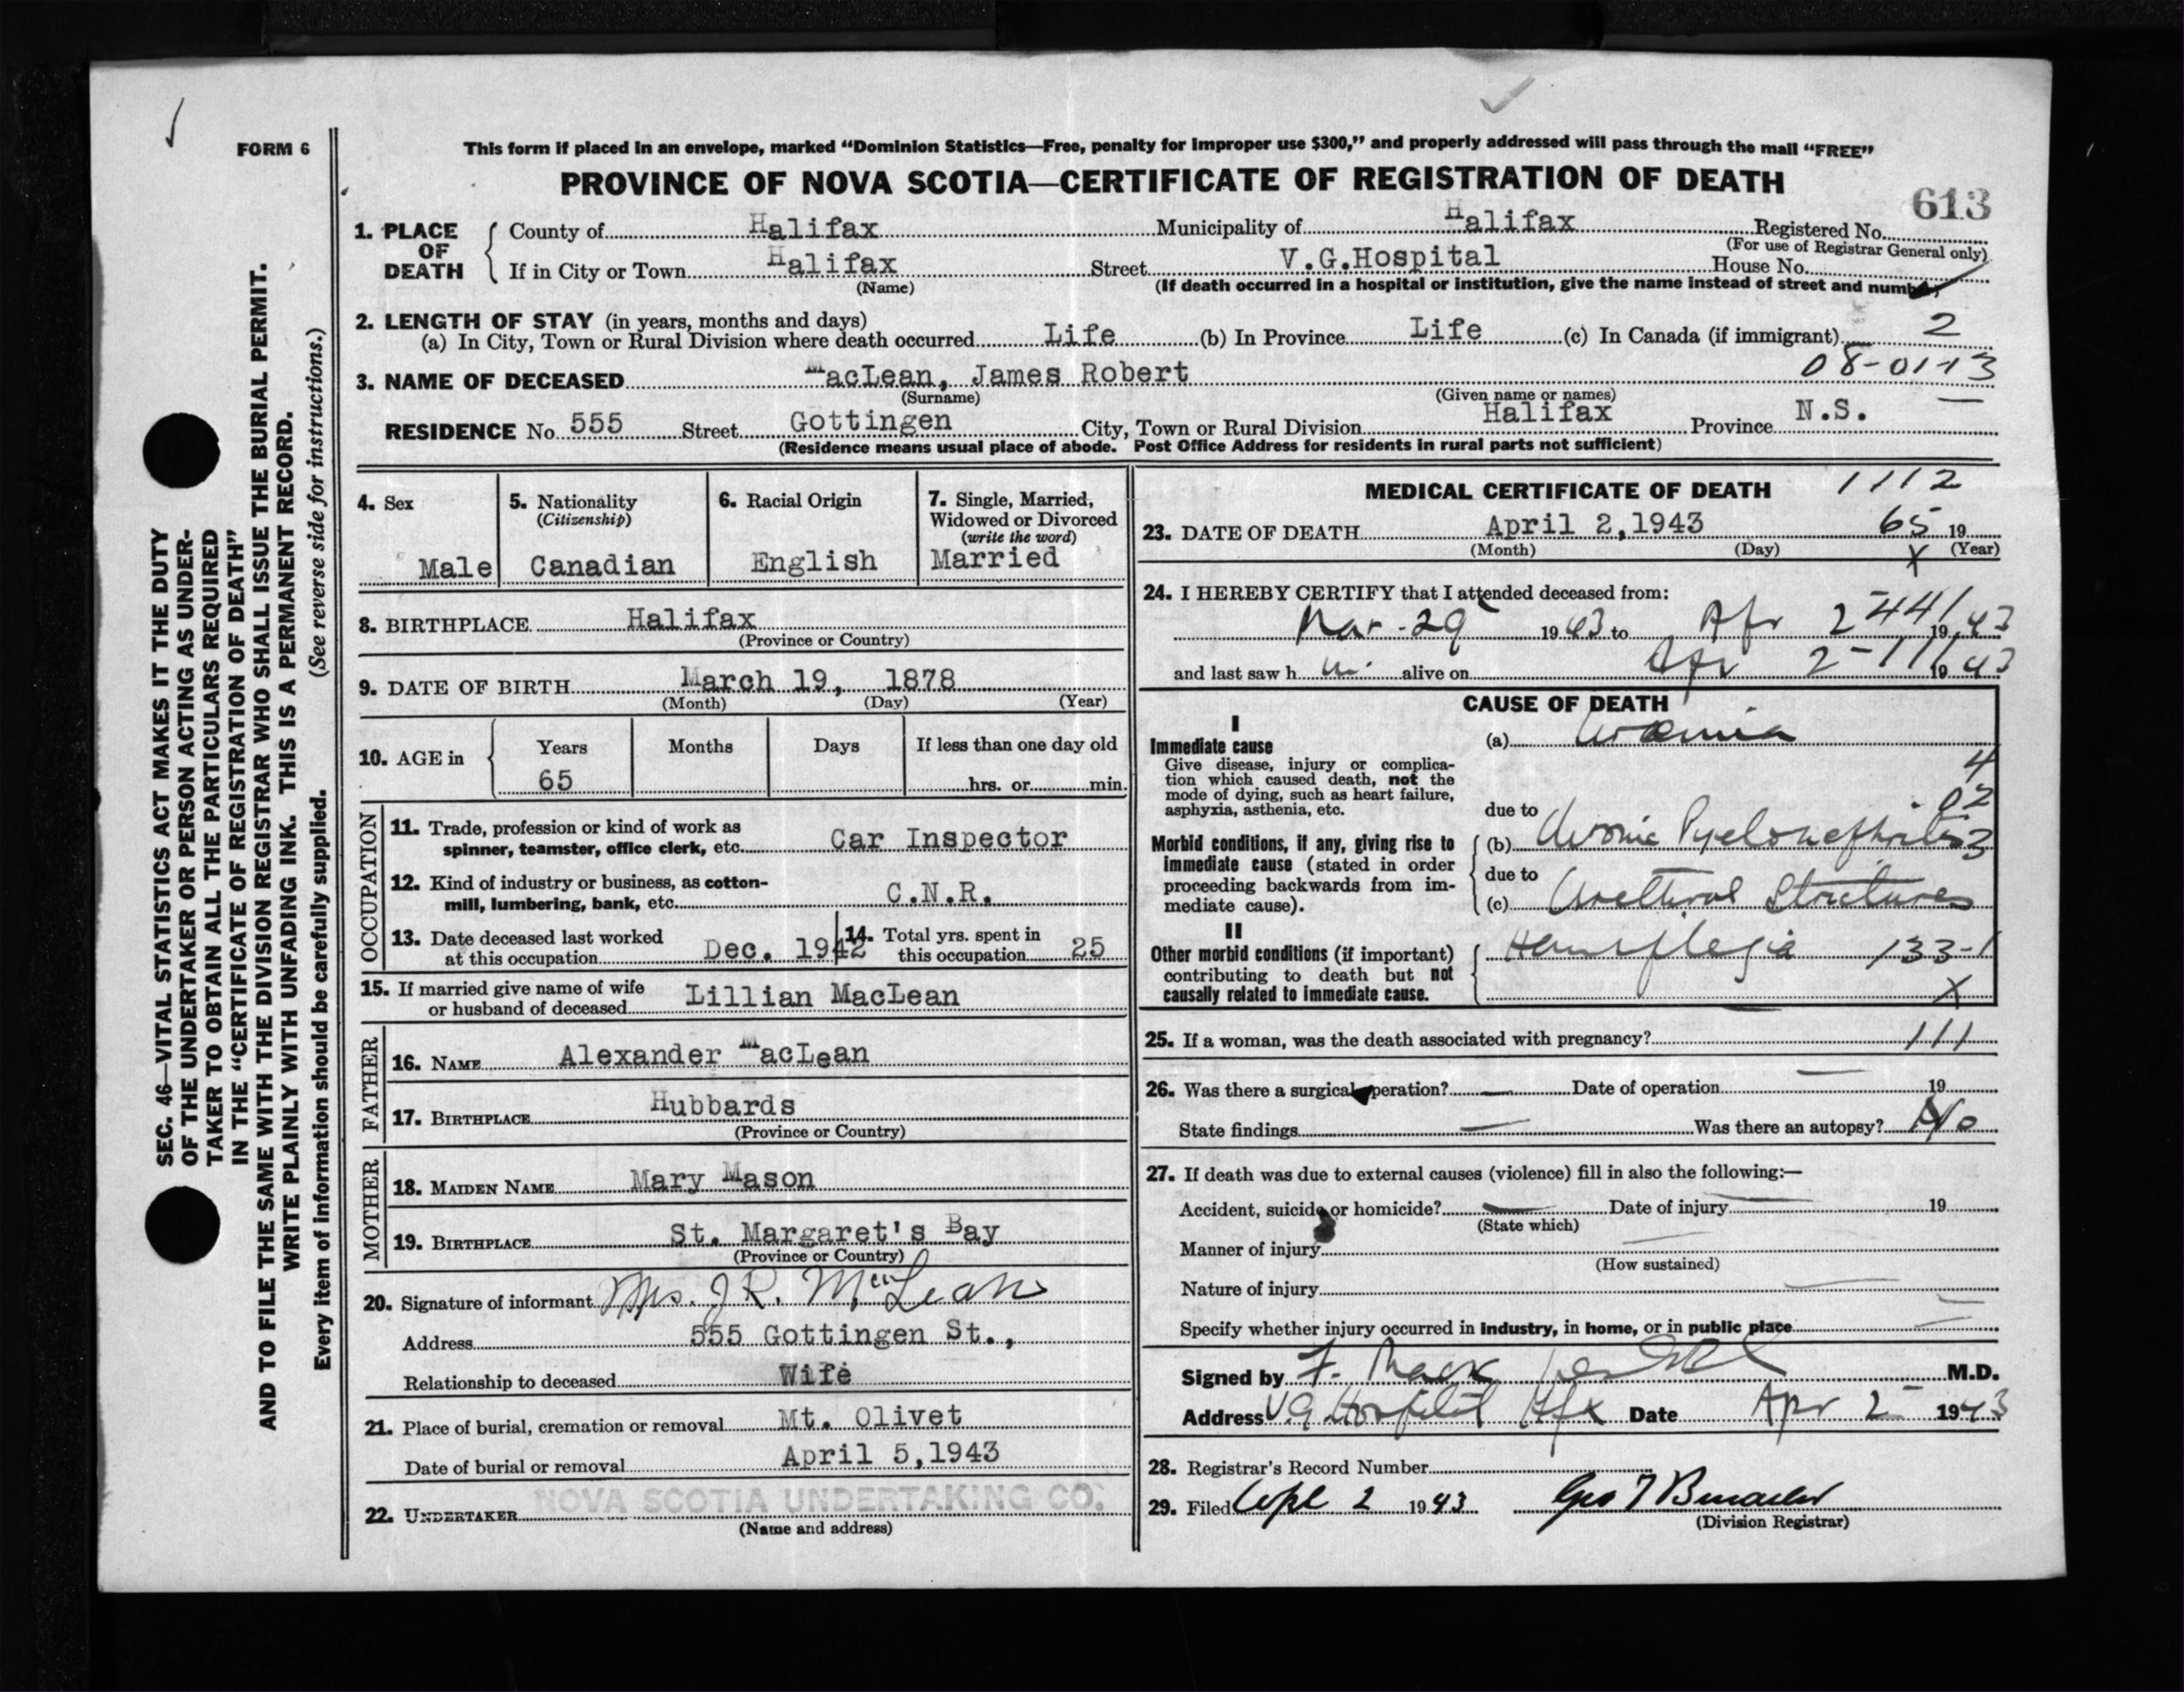 FORM 6
This form if placed in an envelope, marked “Dominion Statistics—Free, penalty for improper use $300,” and properly addressed will pass through the mail “FREE”
PROVINCE OF NOVA SCOTIA—CERTIFICATE OF REGISTRATION OF DEATH
613
1. PLACE OF DEATH
County of Halifax Municipality of Halifax Registered No.
(For use of Registrar General only)
If in City or Town Halifax Street V.G.Hospital House No.
(Name) (If death occurred in a hospital or institution, give the name instead of street and number)
2. LENGTH OF STAY (in years, months and days)
(a) In City, Town or Rural Division where death occurred Life (b) In Province Life (c) In Canada (if immigrant) 2
08-01-13
3. NAME OF DECEASED MacLean, James Robert
(Surname) (Given name or names)
RESIDENCE No. 555 Street Gottingen City, Town or Rural Division Halifax Province N.S.
(Residence means usual place of abode. Post Office Address for residents in rural parts not sufficient)
4. Sex
Male
5. Nationality
(Citizenship)
Canadian
6. Racial Origin
English
7. Single, Married,
Widowed or Divorced
(write the word)
Married
8. BIRTHPLACE Halifax
(Province or Country)
9. DATE OF BIRTH March 19, 1878
(Month) (Day) (Year)
10. AGE in
Years Months Days If less than one day old
65 hrs. or min.
OCCUPATION
11. Trade, profession or kind of work as
spinner, teamster, office clerk, etc. Car Inspector
12. Kind of industry or business, as cotton-
mill, lumbering, bank, etc. C.N.R.
13. Date deceased last worked
at this occupation Dec. 1942
14. Total yrs. spent in
this occupation 25
15. If married give name of wife
or husband of deceased Lillian MacLean
FATHER
16. NAME Alexander MacLean
17. BIRTHPLACE Hubbards
(Province or Country)
MOTHER
18. MAIDEN NAME Mary Mason
19. BIRTHPLACE St. Margaret's Bay
(Province or Country)
20. Signature of informant Mrs. J R. McLean
Address 555 Gottingen St.,
Relationship to deceased Wife
21. Place of burial, cremation or removal Mt. Olivet
Date of burial or removal April 5,1943
22. UNDERTAKER NOVA SCOTIA UNDERTAKING CO.
(Name and address)
MEDICAL CERTIFICATE OF DEATH 1112
23. DATE OF DEATH April 2,1943 65 19
(Month) (Day) X (Year)
24. I HEREBY CERTIFY that I attended deceased from:
Mar. 29 1943 to Apr 2 441 1943
and last saw h m alive on Apr 2-11 1943
CAUSE OF DEATH
I
Immediate cause
Give disease, injury or complica-
tion which caused death, not the
mode of dying, such as heart failure,
asphyxia, asthenia, etc.
(a) Uraemia
4
02
3
due to
Morbid conditions, if any, giving rise to
immediate cause (stated in order
proceeding backwards from im-
mediate cause).
(b) Chronic Pyelonephritis
due to
(c) Urethral Strictures
II
Other morbid conditions (if important)
contributing to death but not
causally related to immediate cause.
Hemiplegia 133-1
X
25. If a woman, was the death associated with pregnancy? 111
26. Was there a surgical operation? — Date of operation — 19
State findings — Was there an autopsy? No
27. If death was due to external causes (violence) fill in also the following:—
Accident, suicide or homicide? — Date of injury — 19
(State which)
Manner of injury —
(How sustained)
Nature of injury —
Specify whether injury occurred in industry, in home, or in public place —
Signed by F. Mack M.D.
Address V.G Hospital Hfx Date Apr 2 1943
28. Registrar's Record Number
29. Filed Apl 2 1943 Geo T
(Division Registrar)
SEC. 46—VITAL STATISTICS ACT MAKES IT THE DUTY
OF THE UNDERTAKER OR PERSON ACTING AS UNDER-
TAKER TO OBTAIN ALL THE PARTICULARS REQUIRED
IN THE “CERTIFICATE OF REGISTRATION OF DEATH”
AND TO FILE THE SAME WITH THE DIVISION REGISTRAR WHO SHALL ISSUE THE BURIAL PERMIT.
WRITE PLAINLY WITH UNFADING INK. THIS IS A PERMANENT RECORD.
Every item of information should be carefully supplied. (See reverse side for instructions.)